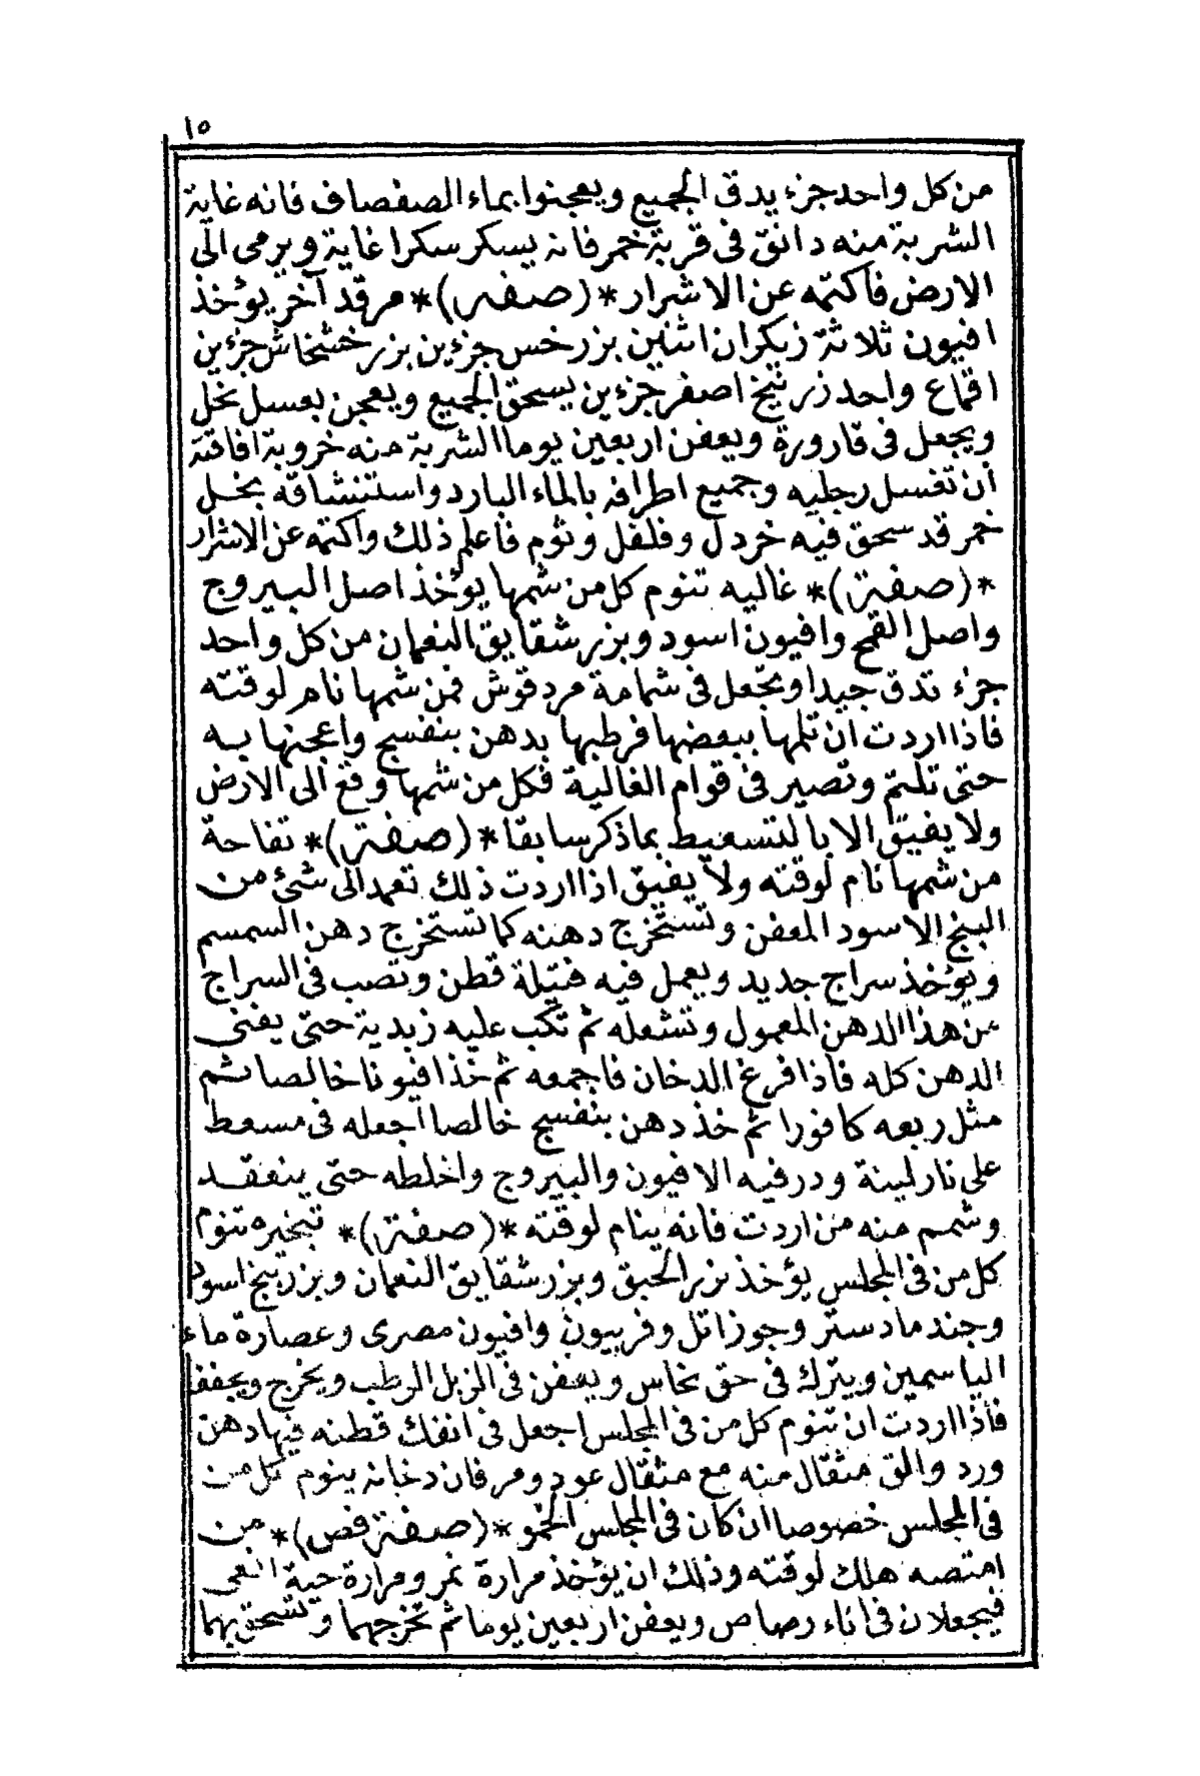 ١٥
من كل واحد جزء يدق الجميع ويعجنوا بماء الصفصاف فانه غاية
الشربة منه دانق فى قربة خمر فانه يسكر سكرا غاية ويرمى الى
الارض فاكتمه عن الاشرار *(صفة)* مرقد آخر يؤخذ
افيون ثلاثة زيكران اثنين بزر خس جزءين بزر خشخاش جزءين
اقماع واحد زرنيخ اصفر جزءين يسحق الجميع ويعجن بعسل نحل
ويجعل فى قارورة ويعفن اربعين يوما الشربة منه خروبة افاقته
ان تغسل رجليه وجميع اطرافه بالماء البارد واستنشاقه بخل
خمر قد سحق فيه خردل وفلفل وثوم فاعلم ذلك واكتمه عن الاشرار
*(صفة)* غاليه تنوم كل من شمها يؤخذ اصل البيروج
واصل القمح وافيون اسود وبزر شقايق النعمان من كل واحد
جزء تدق جيدا وتجعل فى شمامة مردقوش فمن شمها نام لوقته
فاذا اردت ان تلمها ببعضها فرطبها بدهن بنفسج واعجنها به
حتى تلتم وتصير فى قوام الغالية فكل من شمها وقع الى الارض
ولا يفيق الا بالتسعيط بماذكر سابقا *(صفة)* تفاحة
من شمها نام لوقته ولا يفيق اذا اردت ذلك تعمد الى شئ من
البنج الاسود المعفن وتستخرج دهنه كما تستخرج دهن السمسم
ويؤخذ سراج جديد ويعمل فيه فتيلة قطن وتصب فى السراج
من هذا الدهن المعمول وتشعله ثم تكب عليه زبدية حتى يفنى
الدهن كله فاذا فرغ الدخان فاجمعه ثم خذ افيونا خالصا ثم
مثل ربعه كافورا ثم خذ دهن بنفسج خالصا اجعله فى مسعط
على نار لينة ودر فيه الافيون والبيروج واخلطه حتى ينعقد
وشمم منه من اردت فانه ينام لوقته *(صفة)* تبخيره تنوم
كل من فى المجلس يؤخذ بزر الحبق وبزر شقايق النعمان وبزر بنج اسود
وجندمادستر وجوز اتل وفربيون وافيون مصرى وعصارة ماء
الياسمين ويترك فى حق نحاس ويعفن فى الزبل الرطب ويخرج ويجفف
فاذا اردت ان تنوم كل من فى المجلس اجعل فى انفك قطنه فيها دهن
ورد والق مثقال منه مع مثقال عود ومر فان دخانه ينوم كل من
فى المجلس خصوصا ان كان فى المجلس الخمو *(صفة فص)* من
امتصه هلك لوقته وذلك ان يؤخذ مرارة نمر ومرارة حية افعى
فيجعلان فى اناء رصاص ويعفن اربعين يوما ثم تخرجهما وتسحق بهما